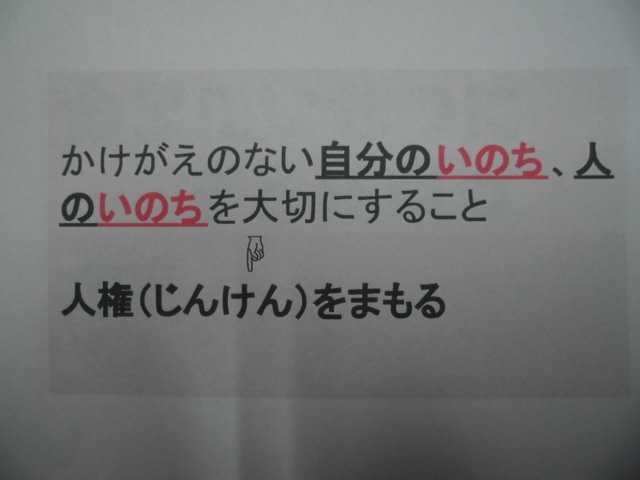 かけがえのない自分のいのち、人
のいのちを大切にすること
人権(じんけん)をまもる